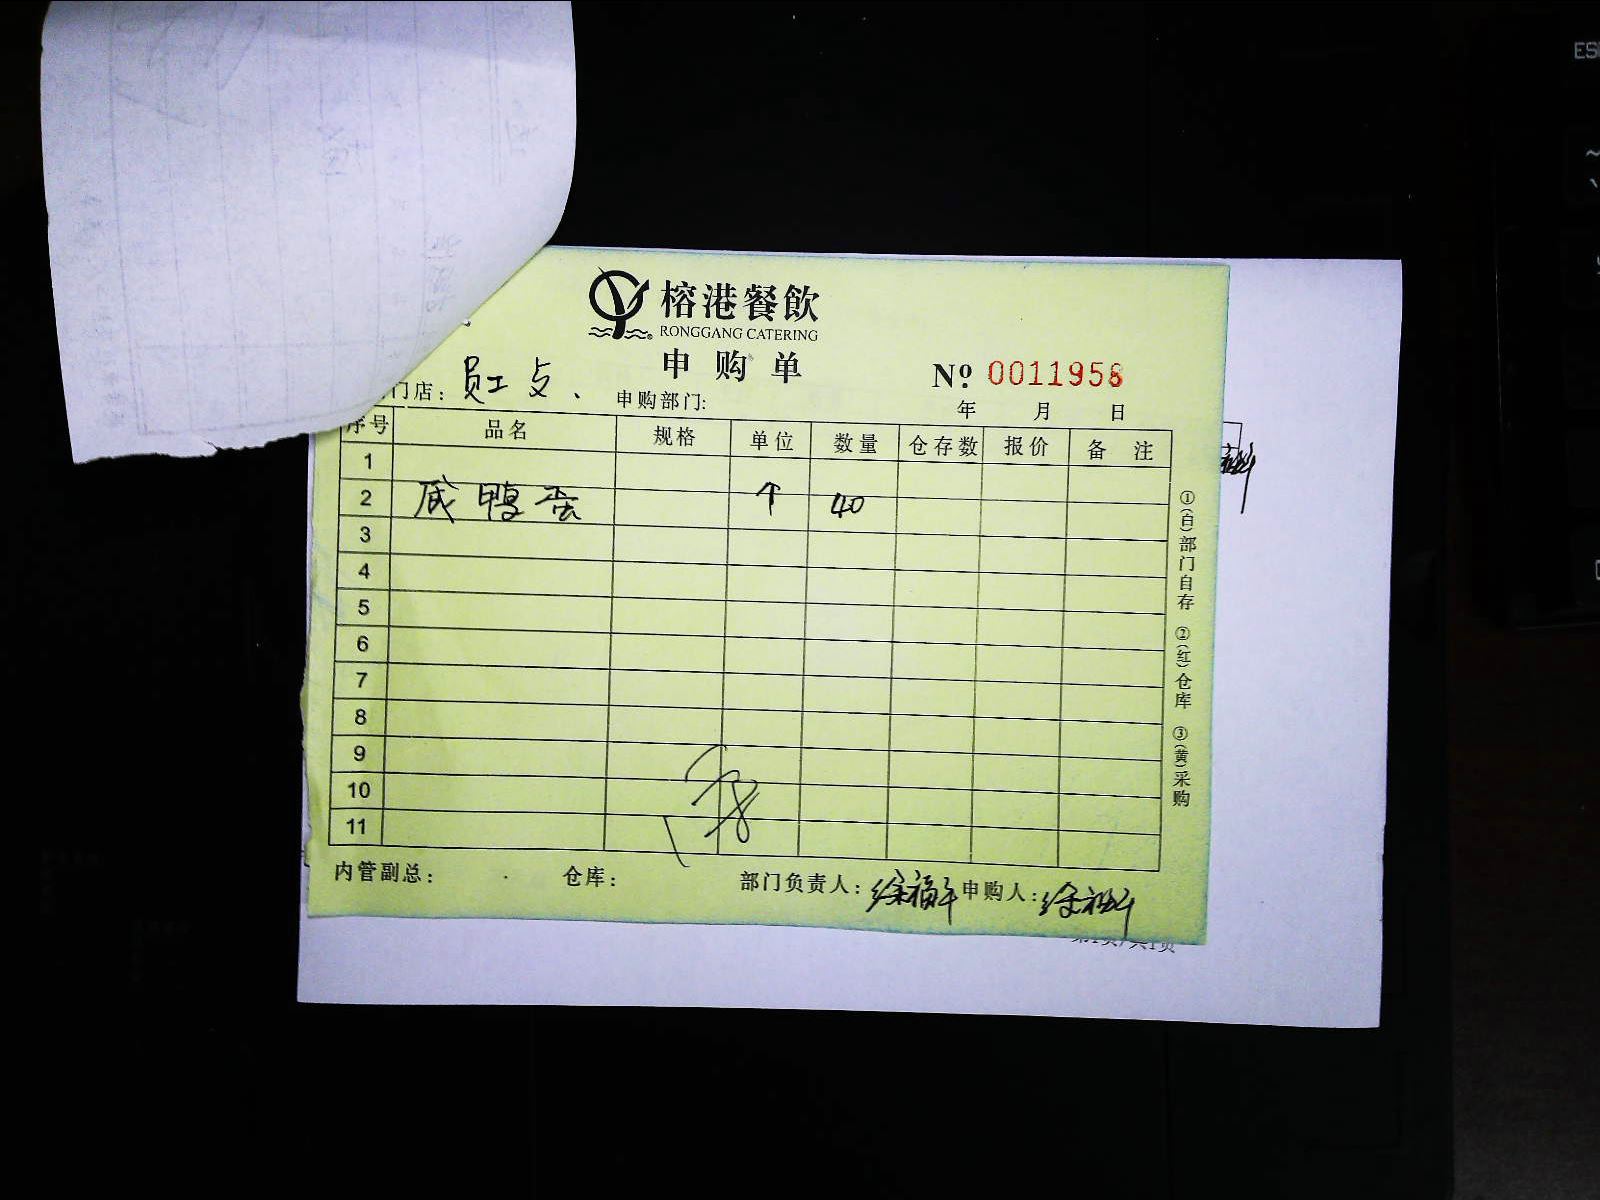 榕港餐飲
RONGGANG CATERING
申购单
№ 0011958
门店： 员工 申购部门:
年 月 日
序号 品名 规格 单位 数量 仓存数 报价 备 注
1
2 咸鸭蛋 个 40
3
4
5
6
7
8
9
10
11
内管副总： 仓库： 部门负责人： 申购人：
①(白)部门自存 ②(红)仓库 ③(黄)采购
第1页/共1页
ES